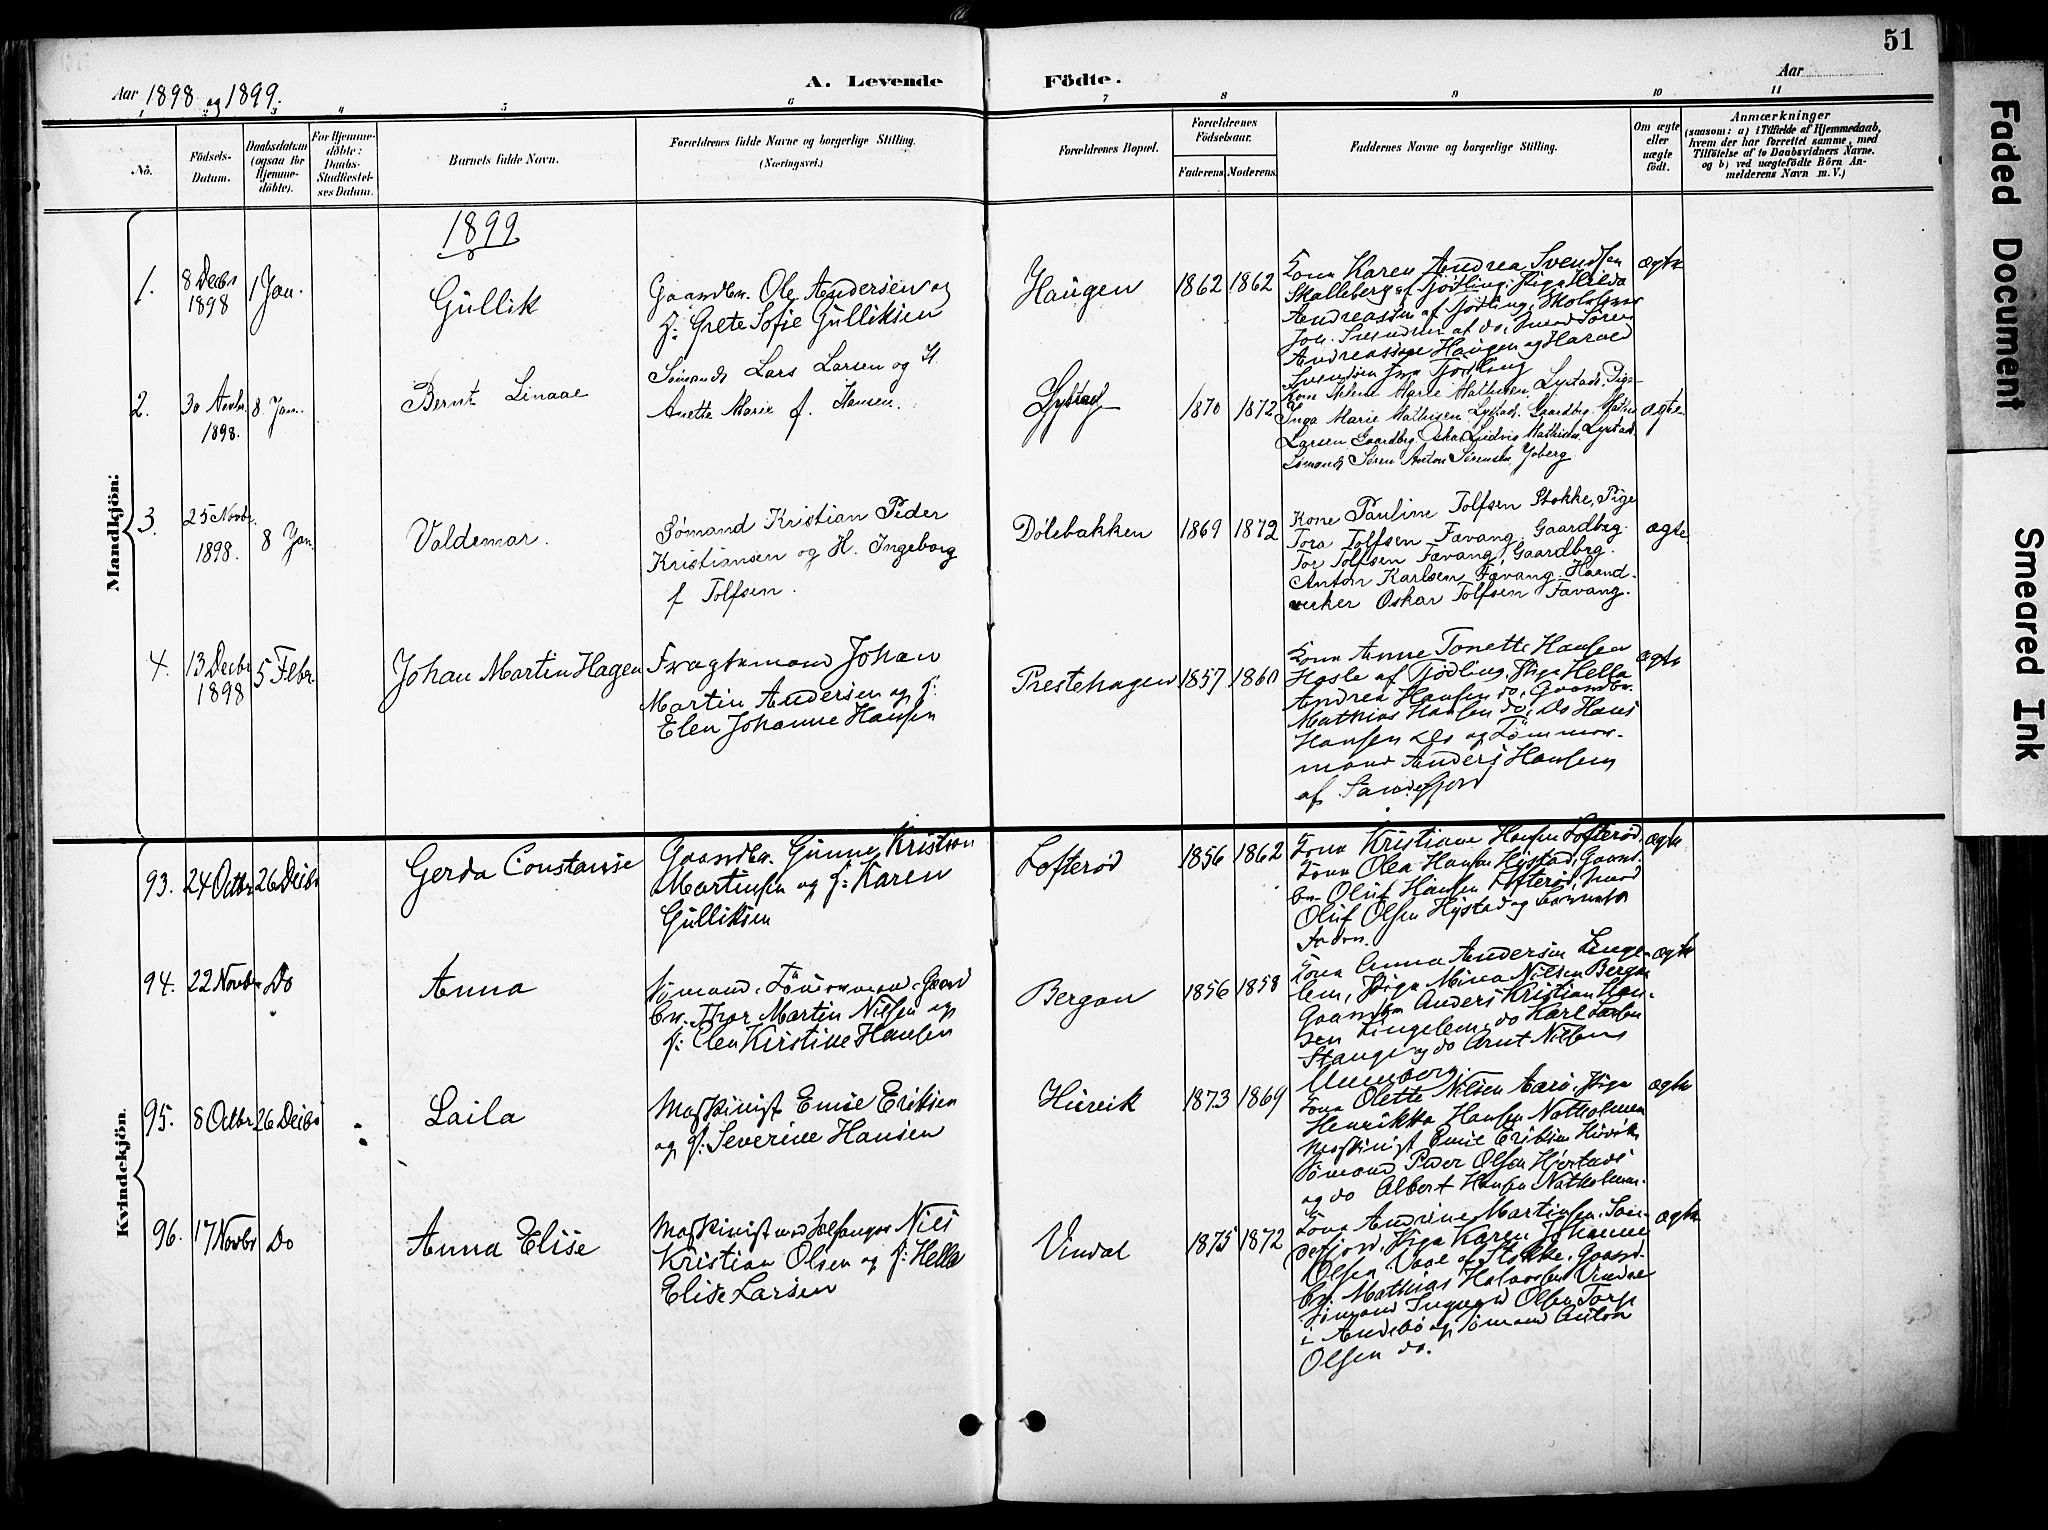 51
Aar 1898 og 1899.
A. Levende Födte.
Aar
1 2 3 4 5 6 7 8 9 10 11
No.
Födsels-Datum.
Daabsdatum (ogsaa for Hjemme-döbte).
For Hjemme-döbte: Daabs-Stadfæstel-ses Datum.
Barnets fulde Navn.
Forældrenes fulde Navne og borgerlige Stilling.
(Næringsvei.)
Forældrenes Bopæl.
Forældrenes Födselsaar.
Faderens. Moderens.
Faddernes Navne og borgerlige Stilling.
Om ægte eller uægte födt.
Anmærkninger
(saasom: a) i Tilfælde af Hjemmedaab,
hvem der har forrettet samme, med
Tilföielse af to Daabsvidners Navne.
og b) ved uægtefödte Börn An-
melderens Navn m. V.)
Mandkjön:
1899
1. 8 Decbr 1898 1 Jan. Gullik
Gaardbr. Ole Andersen og
f: Grete Sofie Gulliksen
Haugen 1862 1862
Kone Karen Andrea Svendsen
Skalleberg af Tjødling, Pige Hilda
Andreassen af Tjødling,
Andreassen Haugen og Harald
Svendsen fra Tjødling
ægte
2. 30 1898. 8 Jan. Bernt Linaae
Sømand Lars Larsen og H
Anette Marie f. Hansen.
Lystad 1870 1872
Kone Helene Marie Mathisen, Lystad, Pige
Inga Marie Mathisen, Lystad, Gaardbg.
Larsen Gaardbg. Oskar Ludvig Mathisen, Lystad.
Sømand Søren Anton Sørensen,
ægte
3. 25 Novbr. 1898. 8 Jan. Valdemar.
Sømand Kristian Peder
Kristiansen og H. Ingeborg
f Tolfsen.
Dølebakken 1869 1872
Kone Pauline Tolfsen Stokke, Pige
Tora Tolfsen Fævang, Gaardbrg.
Tor Tolfsen Fævang, Gaardbrg.
Anton Karlsen Fævang, Haand-
verker Oskar Tolfsen Fævang.
ægte
4. 13 Decbr 1898 5 Febr. Johan Martin Hagen
Fragtemand Johan
Martin Andersen og f:
Elen Johanne Hansen
Prestehagen 1857 1860
Kone Anne Tonette Hansen
Hasle af Tjødling, Pige Hella
Andrea Hansen do, Gaardbr.
Mathias Hansen do, Do Hans
Hansen do og Tømmer-
mand Anders Hansen
af Sandefjord
ægte
Kvindekjön.
93. 24 Octbr 26 Decbr Gerda Constanse
Gaardbr. Gunne Kristian
Martinsen og f: Karen
Gulliksen
Lofterød 1856 1862
Kone Kristiane Hansen Lofterød,
Kone Olea Hansen Hystad, Gaard-
br. Oluf Hansen Lofterød,
Oluf Olsen Hystad og Barnets
Fader.
ægte
94. 22 Novbr Do Anna
Sømand, Tømmermand, Gaard
br. Thor Martin Nilsen og
f: Elen Kirstine Hansen
Bergan 1856 1858
Kone Anna Andersen Lenge-
lem, Pige Mina Nilsen Bergan
Gaardbr Anders Kristian Han-
sen Lingelem, do Karl
Stange og do Arnt Nilsen
Unneberg.
ægte
95. 8 Octbr 26 Decbr Laila
Maskinist Emil Eriksen
og f: Severine Hansen
Huvik 1873 1869
Kone Olette Nilsen Aarø, Pige
Henrikka Hansen Natholmen
Maskinist Emil Eriksen Huvik
Sømand Peder Olsen Hjertaas
og do Albert Hansen Natholmen.
ægte
96. 17 Novbr Do Anna Elise
Maskinist ved Sælfanger Nils
Kristian Olsen og f: Hella
Elise Larsen
Vindal 1875 1872
Kone Andrine Martinsen, San-
defjord, Pige Karen Johanne
Olsen Vaae af Stokke, Gaard-
br. Mathias Halvorsen Vindal
Sømand Ingvald Olsen Torp
i Andebø og Sømand Anton
Olsen do.
ægte
Faded Document
Smeared Ink